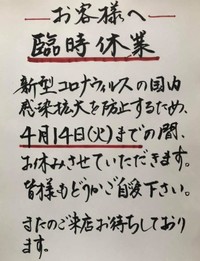 お客様へ
臨時休業
新型コロナウィルスの国内
感染拡大を防止するため、
4月14日(火)までの間、
お休みさせていただきます。
皆様もどうかご自愛下さい。
またのご来店お待ちしており
ます。